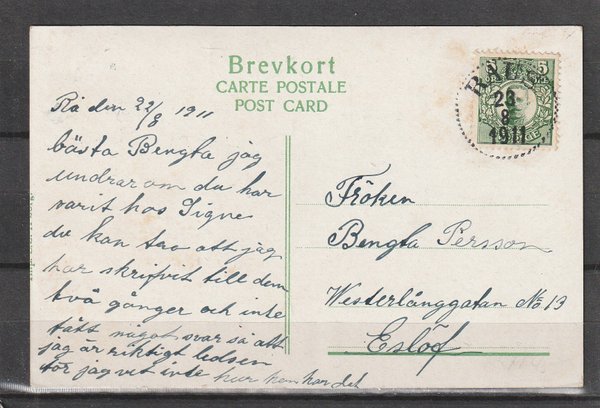 Brevkort
CARTE POSTALE
POST CARD
Rå den 22/8 1911
bästa Bengta jag
undrar om du har
varit hos Signe
du kan tro att jag
har skrifvit till dem
två gånger och inte
fått något svar så att
jag är riktigt ledsen
för jag vet inte hur hon har det
5
RÅÅ
23
8
1911
Fröken
Bengta Persson
Westerlånggatan No 13
Eslöf